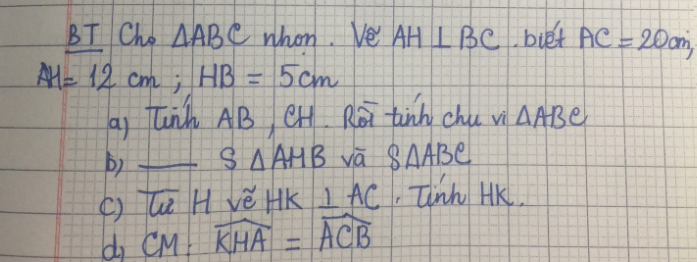 BT Cho ΔABC nhọn. Vẽ AH ⊥ BC. biết AC = 20cm,
AH = 12 cm ; HB = 5cm
a) Tính AB, CH. Rồi tính chu vi ΔABC
b) —— S ΔAHB và SΔABC
c) Từ H vẽ HK ⊥ AC. Tính HK.
d) CM: \widehat{KHA} = \widehat{ACB}